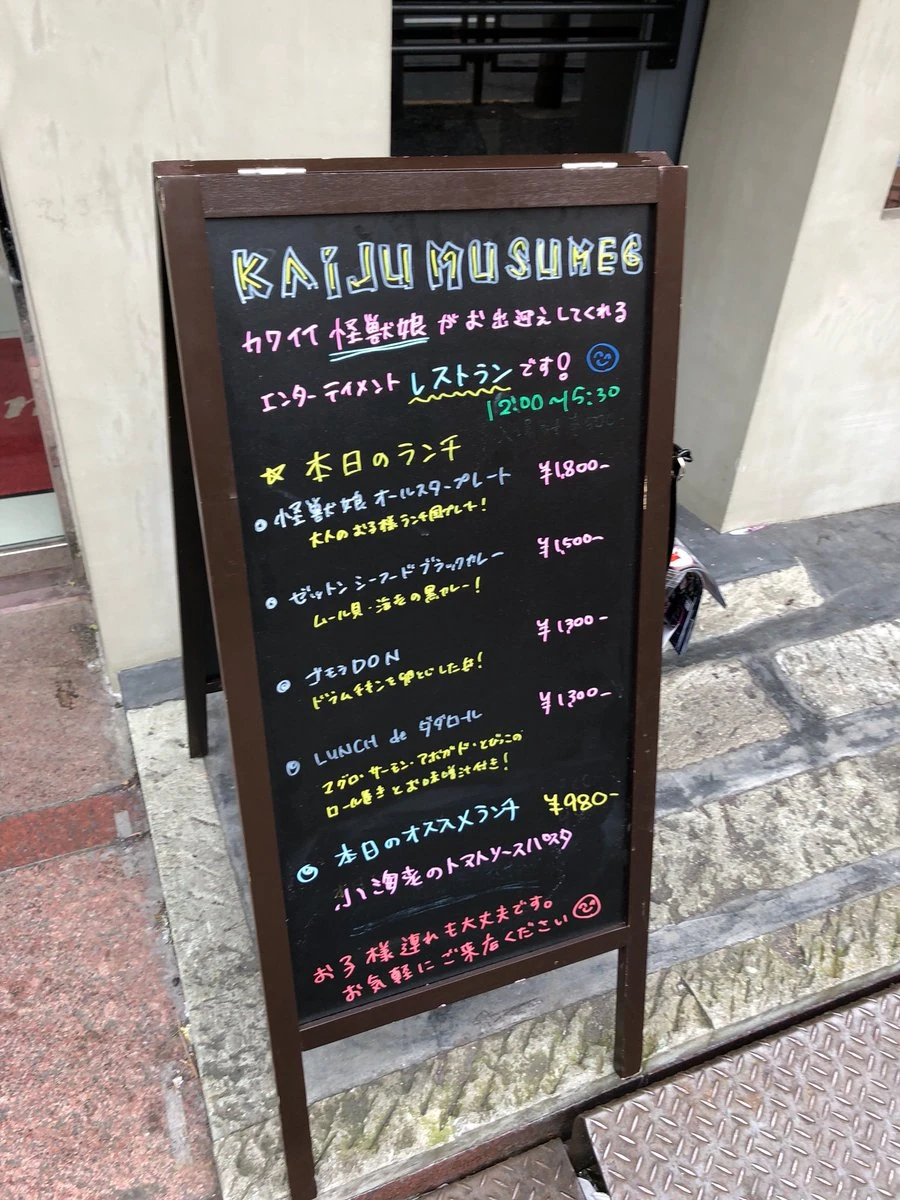 KAIJU MUSUME6
カワイイ怪獣娘がお出迎えしてくれる
エンターテイメントレストランです!
12:00~15:30
☆本日のランチ
・怪獣娘オールスタープレート ¥1,800-
大人のお子様ランチ風プレート!
・ゼットンシーフードブラックカレー ¥1,500-
ムール貝・海老の黒カレー!
・ゴモラDON ¥1,300-
ドラムチキンを卵とじした丼!
・LUNCH de ダダロール ¥1,300-
マグロ・サーモン・アボガド・とびっこの
ロール巻きとお味噌汁付き!
・本日のオススメランチ ¥980-
小海老のトマトソースパスタ
お子様連れも大丈夫です。
お気軽にご来店ください